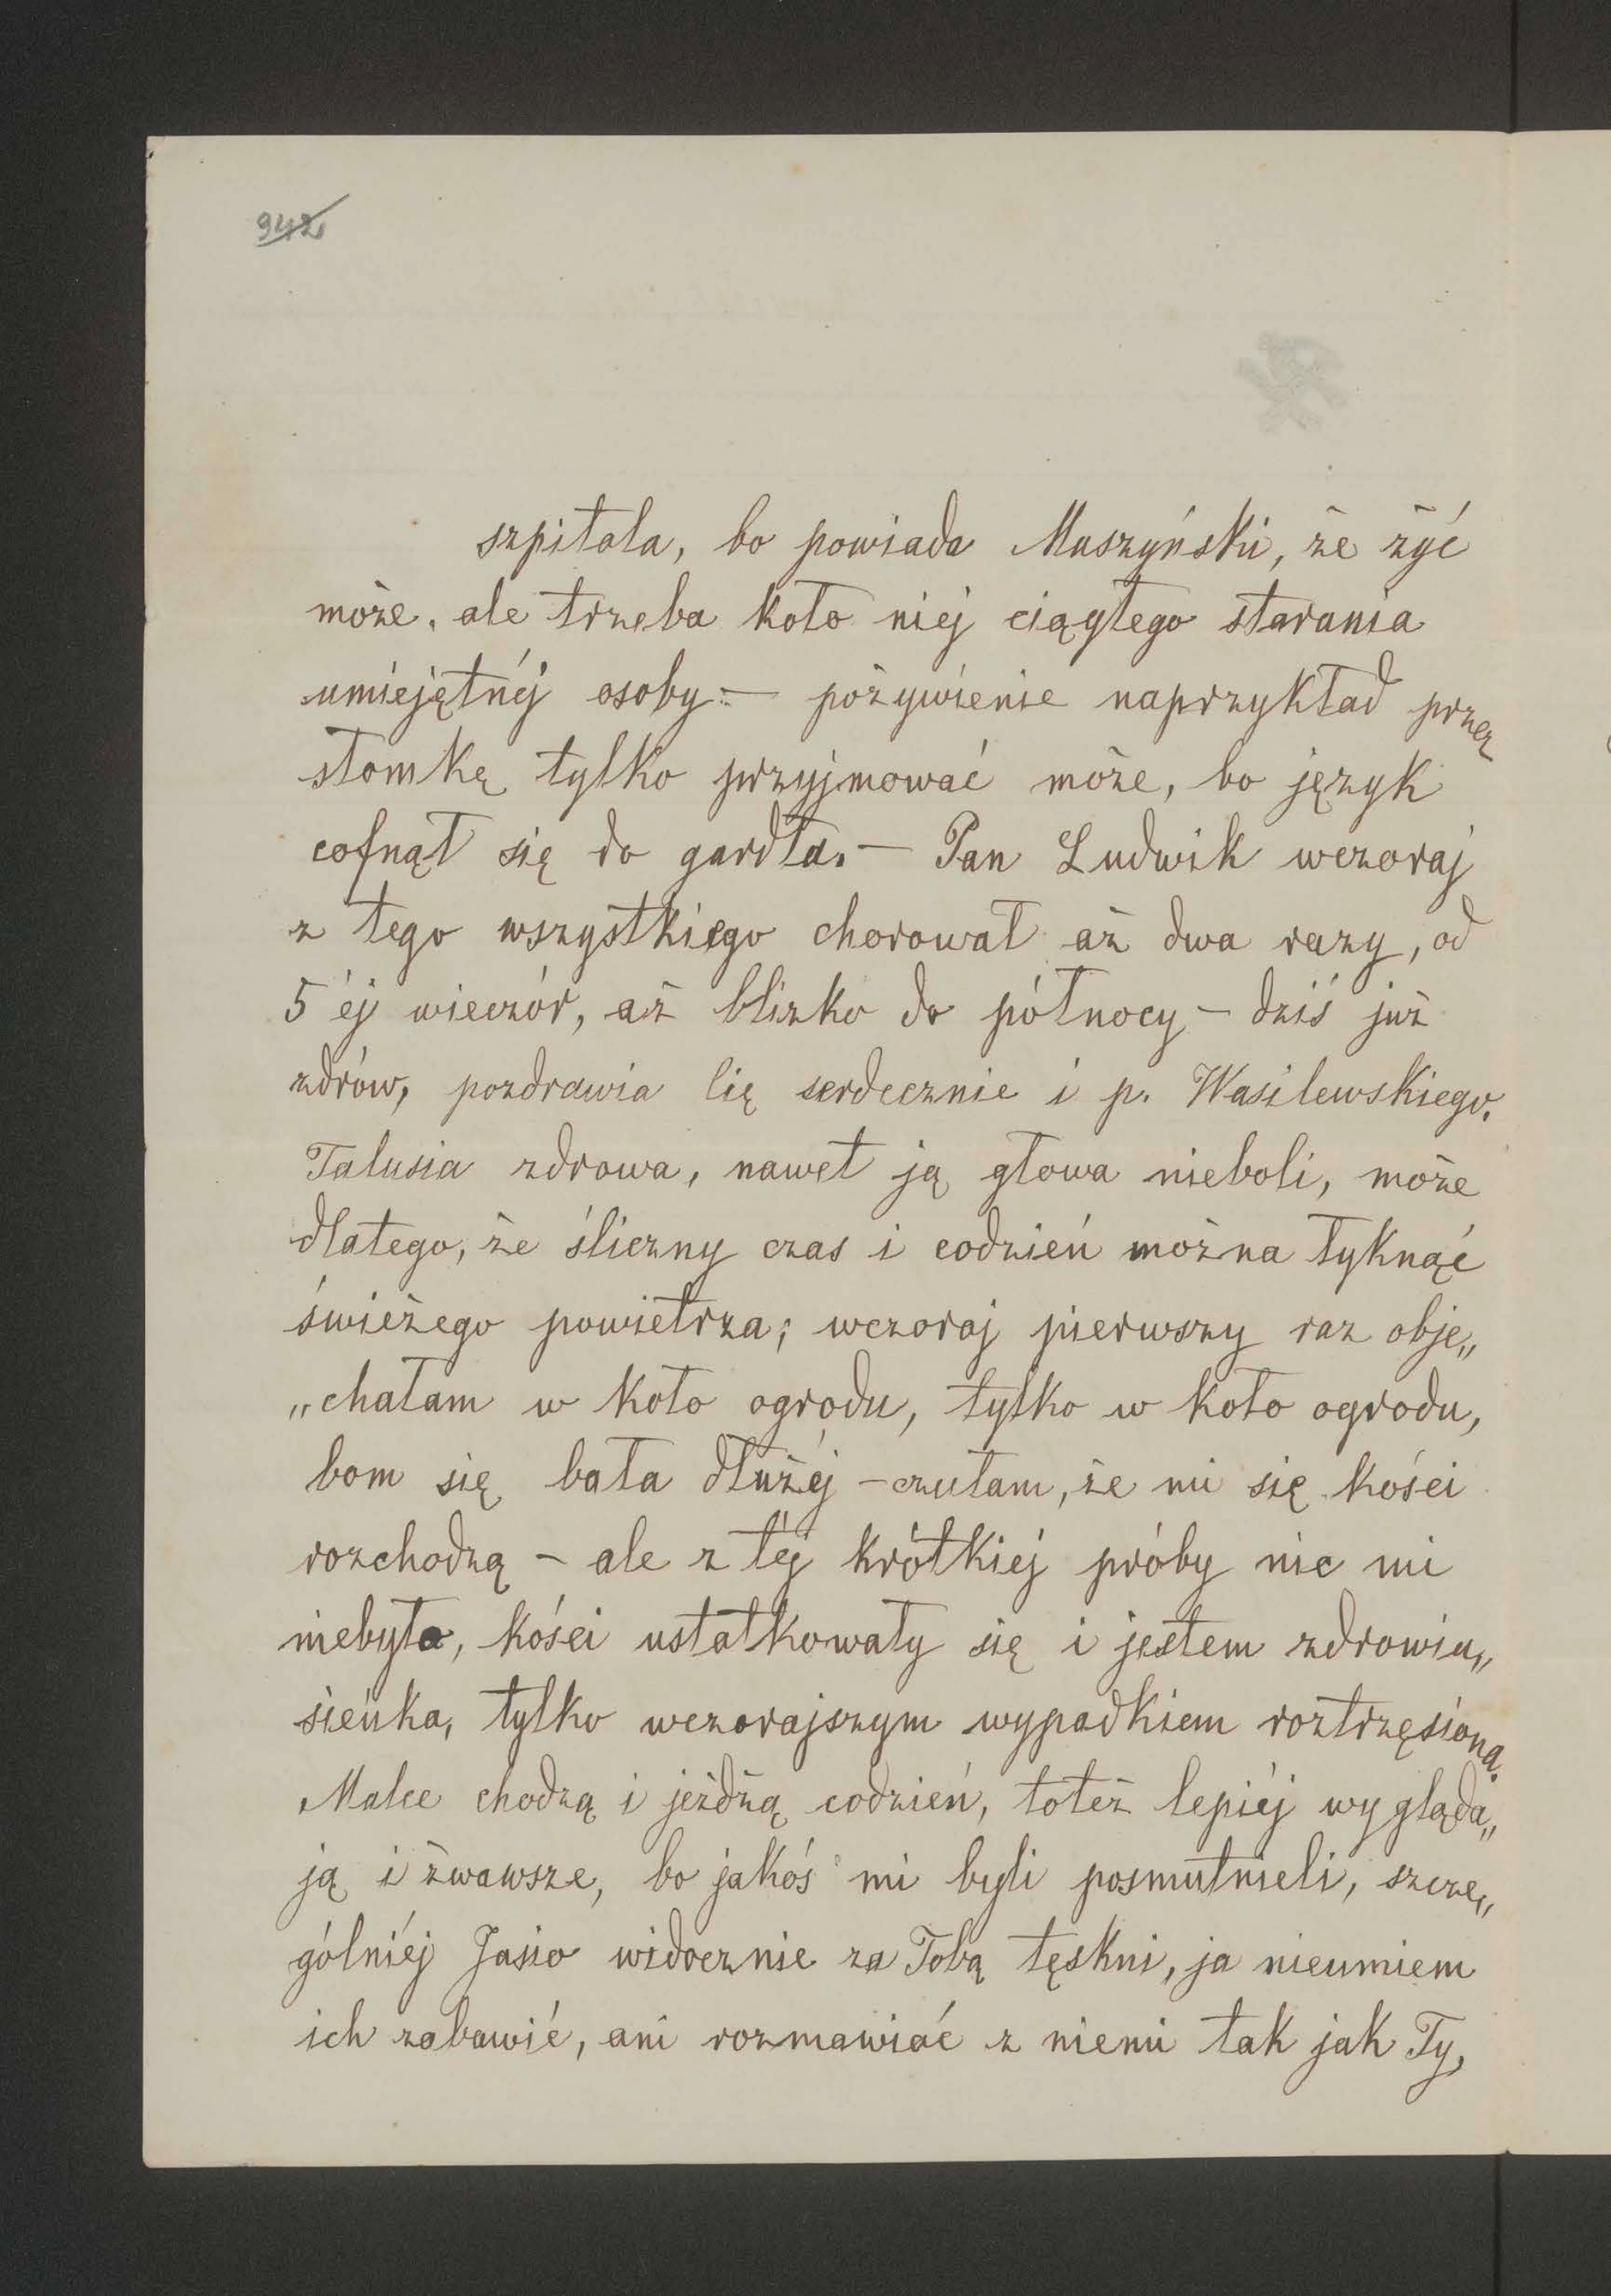 942
szpitala, bo powiada Muszyński, że żyć
może, ale trzeba koło niej ciągłego starania
umiejętnéj osoby – pożywienie naprzykład przez
słomkę tylko przyjmować może, bo język
cofnął się do gardła. – Pan Ludwik wczoraj
z tego wszystkiego chorował aż dwa razy, od
5 éj wieczór, aż blizko do północy – dziś już
zdrów, pozdrawia Cię serdecznie i p. Wasilewskiego.
Talusia zdrowa, nawet ją głowa nieboli, może
dlatego, że śliczny czas i codzień można łyknąć
świeżego powietrza; wczoraj pierwszy raz obje„
„chałam w koło ogrodu, tylko w koło ogrodu,
bom się bała dłużéj – czułam, że mi się kości
rozchodzą – ale z téj krótkiéj próby nic mi
niebyło, kości ustatkowały się i jestem zdrowiu„
sieńka, tylko wczorajszym wypadkiem roztrzęsiona.
Malce chodzą i jeżdżą codzień, toteż lepiéj wygląda„
ją i żwawsze, bo jakoś mi byli posmutnieli, szcze„
gólniéj Jasio widocznie za Tobą tęskni, ja nieumiem
ich zabawić, ani rozmawiać z niemi tak jak Ty,